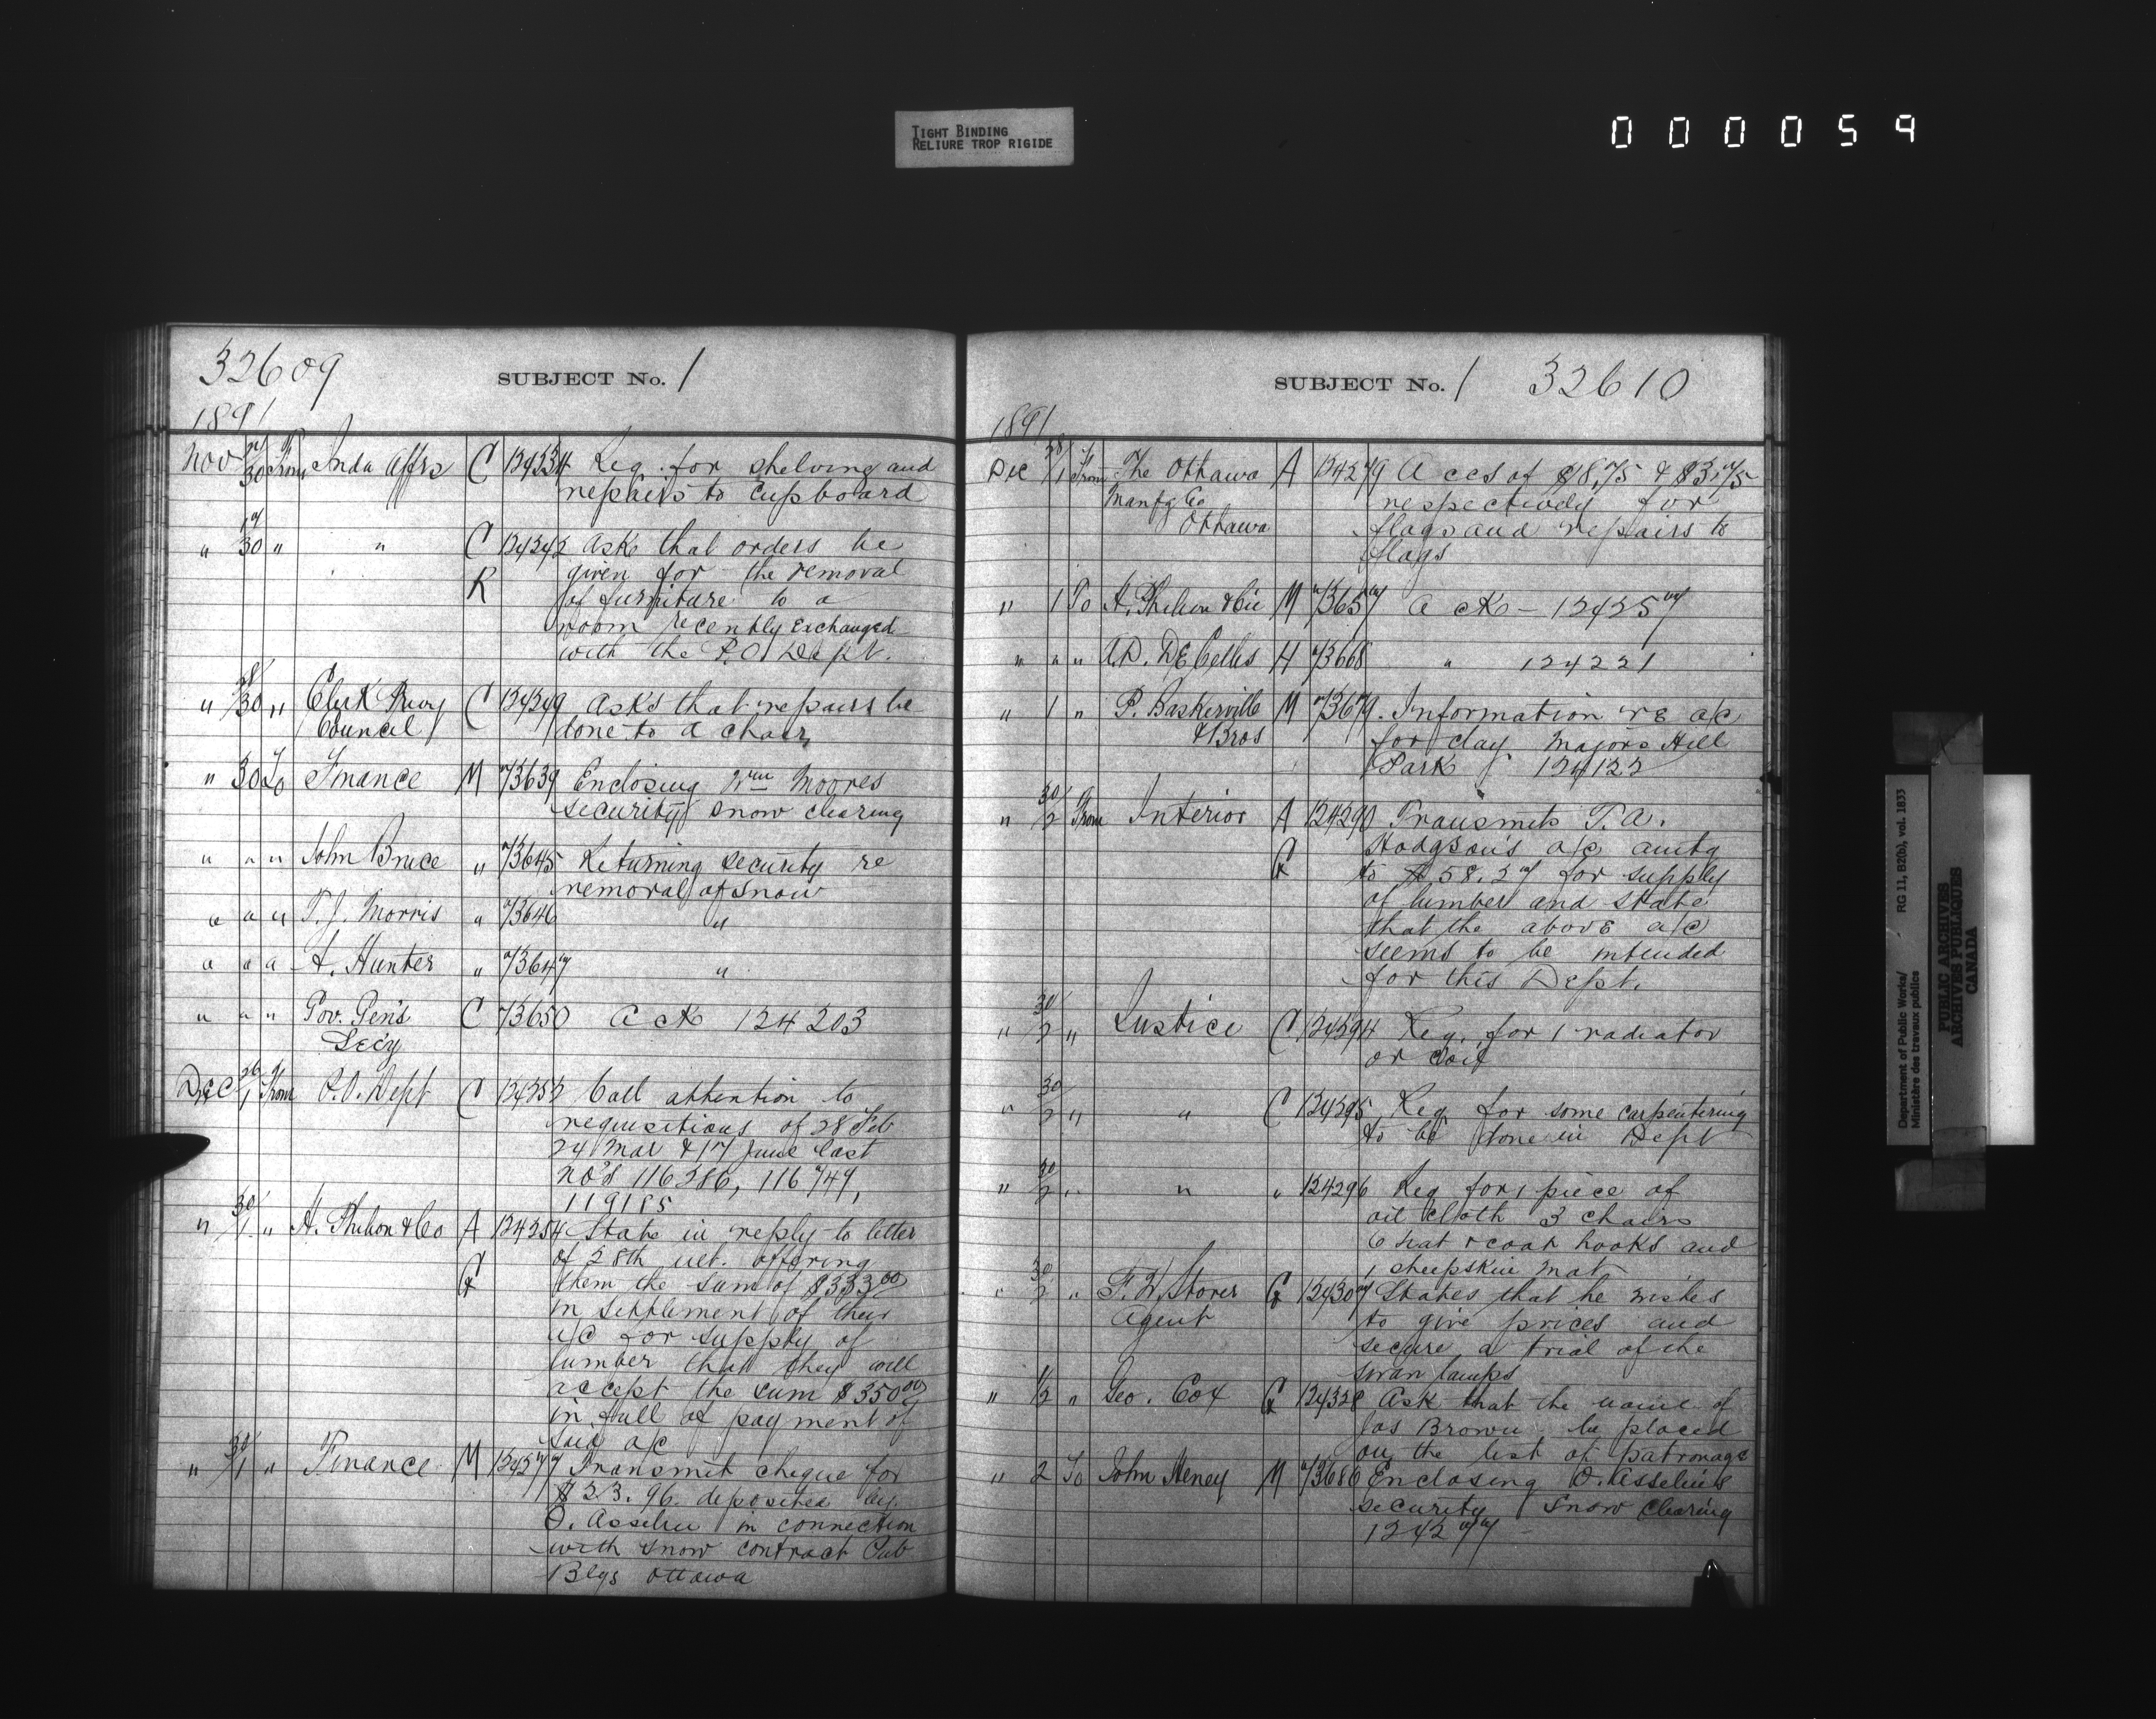 TIGHT BINDING
RELIURE TROP RIGIDE
000059
32609
SUBJECT No. 1
1891
Nov 27/30 From Inda Affrs C 124234 Req. for shelving and
repairs to Cupboard
" 17/30 " " C 124242 Ask that orders be
R given for the removal
of furniture to a
room recently Exchanged
with the P.O. Dept.
" 28/30 " Clerk Privy C 124249 Asks that repairs be
Council done to a chair
" 30 To Finance M 73639 Enclosing Wm Moores
security snow clearing
" " " John Bruce " 73645 Returning security re
removal of snow
" " " T. J. Morris " 73646 "
" " " A. Hunter " 73647 "
" " " Gov. Gen's C 73650 Ack 124203
Secy
Dec 26/1 From P.O. Dept C 124252 Call attention to
requisitions of 28 Feb
24 Mar & 17 June last
No's 116286, 116749,
119185
" 30/1 " A. Philion & Co A 124254 State in reply to letter
G of 28th ult. offering
them the sum of $333.00
in settlement of their
a/c for supply of
lumber that they will
accept the sum $350.00
in full of payment of
said a/c
" 30/1 " Finance M 124277 Transmit cheque for
$23.96 deposited by
O. Asselin in connection
with snow contract Pub
Blgs Ottawa
SUBJECT No. 1 32610
1891
Dec 28/1 From The Ottawa A 124279 Accs of $18.75 & $3.75
Manfg Co respectively for
Ottawa flags and repairs to
flags
" 1 To A. Philion & Cie M 73657 Ack - 124257
" " " A.D. DeCelles H 73668 " 124221
" 1 " P. Baskerville M 73679. Information re a/c
& Bros for clay Majors Hill
Park 124122
" 30/2 From Interior A 124290 Transmits T.A.
G Hodgson's a/c amtg
to $58.27 for supply
of lumber and state
that the above a/c
seems to be intended
for this Dept.
" 30/2 " Justice C 124294 Req. for 1 radiator
or coil
" 30/2 " " C 124295 Req for some carpentering
to be done in Dept
" 30/2 " " " 124296 Req for 1 piece of
oil cloth 3 chairs
6 hat & coat hooks and
1 sheepskin mat
" 30/2 " F. W. Storer G 124307 States that he wishes
Agent to give prices and
secure a trial of the
swan lamps
" 1/2 " Geo. Cox G 124328 Ask that the name of
Jas Brown be placed
on the list of patronage
" 2 To John Heney M 73686 Enclosing O. Asselin's
security Snow Clearing
124277
Department of Public Works/ RG 11, B2(b), vol. 1833
Ministère des travaux publics
PUBLIC ARCHIVES
ARCHIVES PUBLIQUES
CANADA